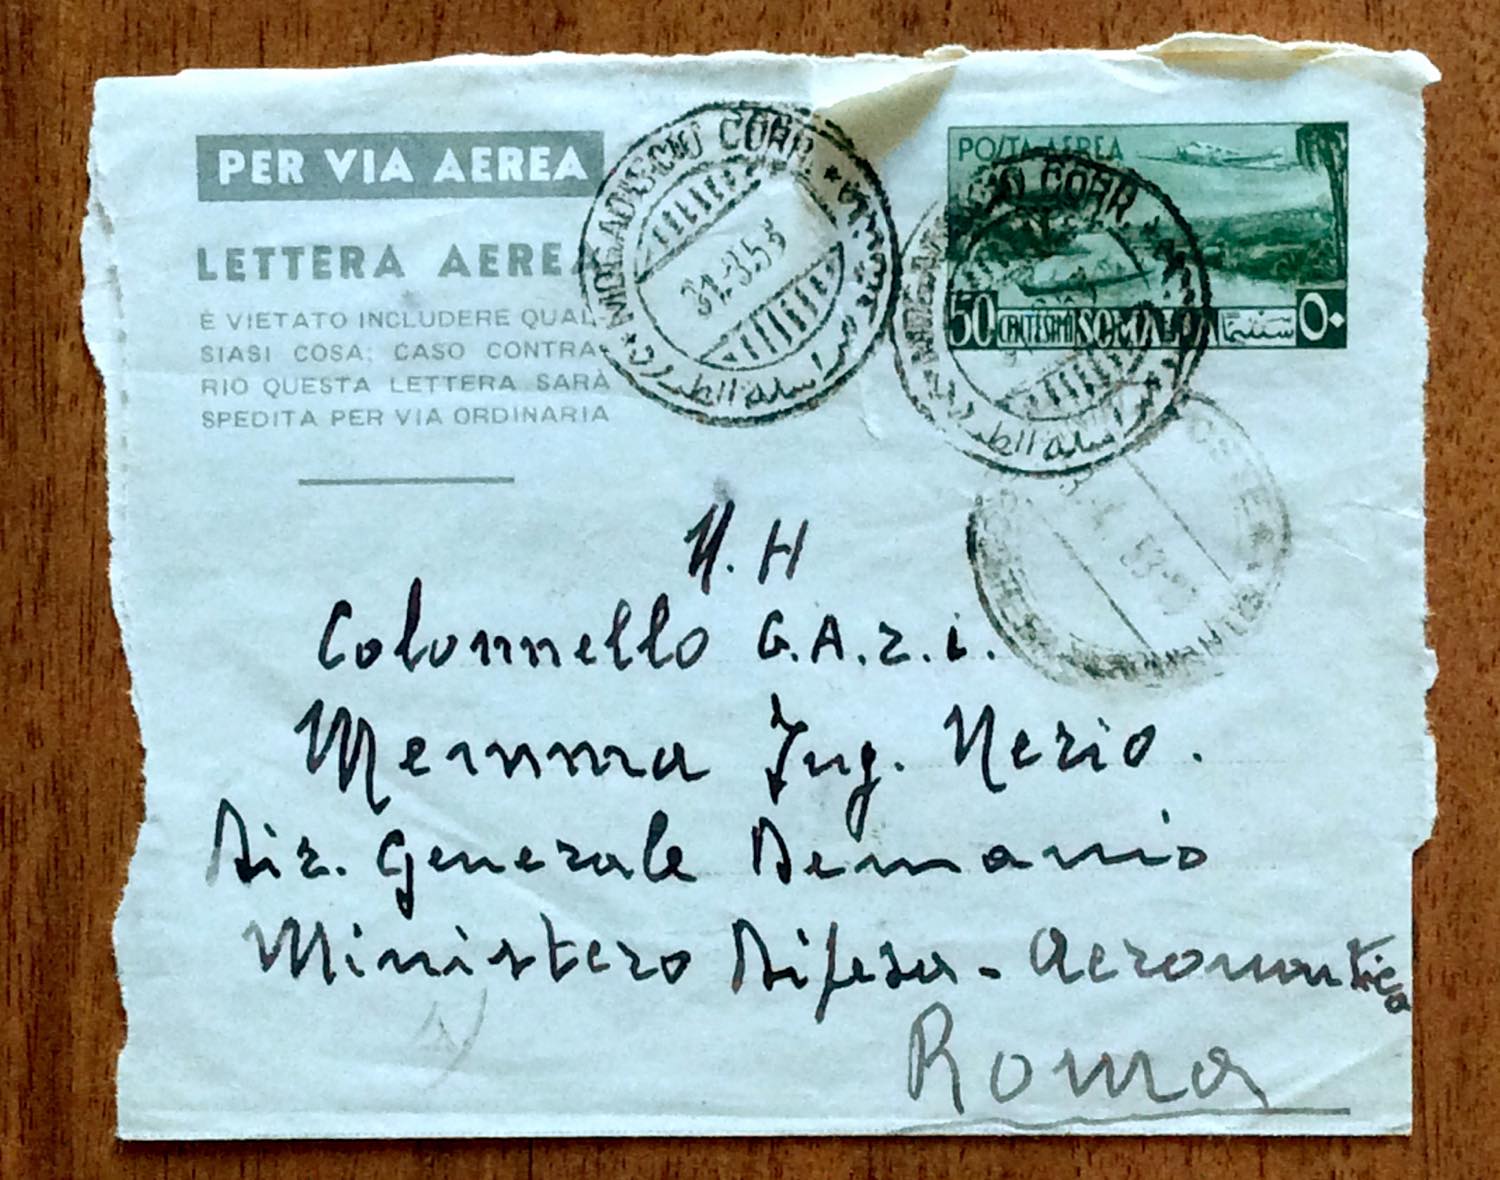 PER VIA AEREA
LETTERA AEREA
È VIETATO INCLUDERE QUAL-
SIASI COSA; CASO CONTRA-
RIO QUESTA LETTERA SARÀ
SPEDITA PER VIA ORDINARIA
MOGADISCIO CORR.
31.3.53
POSTA AEREA
50 CENTESIMI SOMALO
MOGADISCIO CORR.
N. H
Colonnello G.A.r.i.
Memma Ing. Nerio.
Dir. Generale Demanio
Ministero Difesa - Aeronautica
Roma